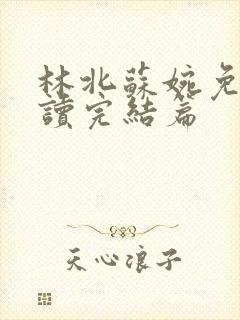 林北蘇婉免
讀完結篇
天心浪子